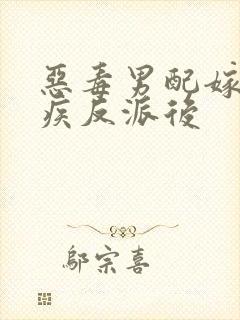 惡毒男配嫁
疾反派後
鄔宗喜